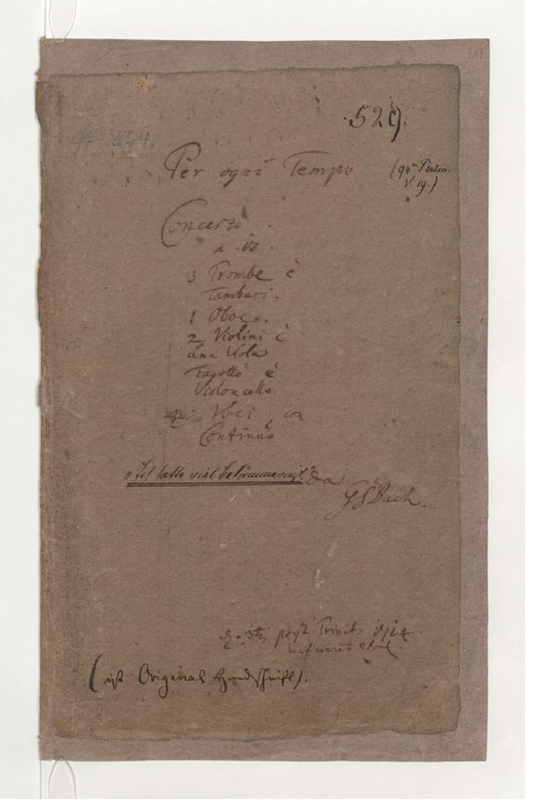 529.
№ 354
Per ogni Tempo (94n Psalm.
V. 19.)
Concerto.
a 13.
3 Trombe è
Tamburi.
1 Oboe.
2 Violini è
una Viola
Fagotto è
Violoncello.
4. Voci con
Continuo
"Ich hatte viel Bekümmerniß." da
GSBach.
post Trinit: 1714
(ist Original Handschrift).